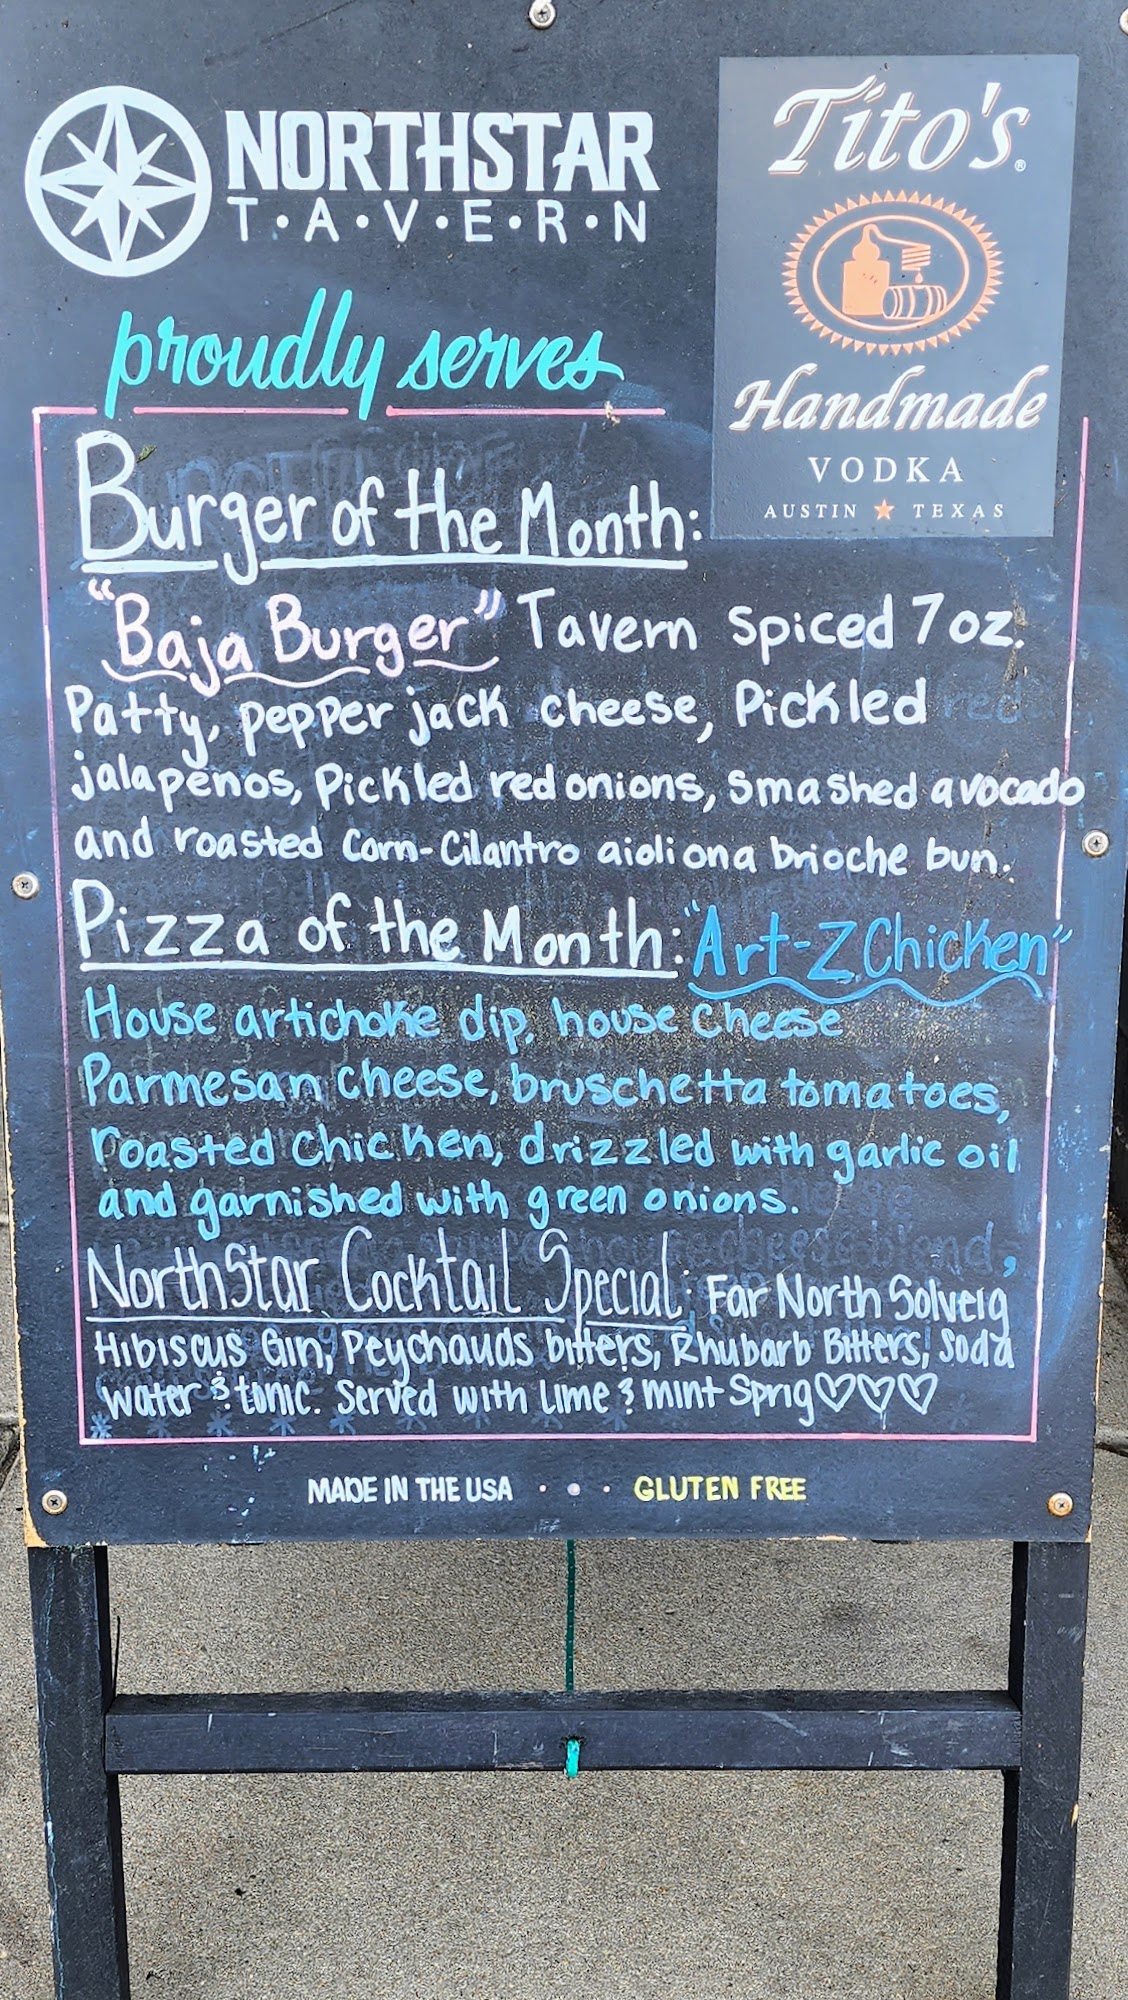 NORTHSTAR
T·A·V·E·R·N
proudly serves
Tito's®
Handmade
VODKA
AUSTIN ★ TEXAS
Burger of the Month:
"Baja Burger" Tavern Spiced 7 oz.
Patty, pepper jack cheese, Pickled
jalapeños, Pickled red onions, smashed avocado
and roasted corn-cilantro aioli on a brioche bun.
Pizza of the Month: "Art-Z Chicken"
House artichoke dip, house cheese
Parmesan cheese, bruschetta tomatoes,
roasted chicken, drizzled with garlic oil
and garnished with green onions.
NorthStar Cocktail Special: Far North Solveig
Hibiscus Gin, Peychauds bitters, Rhubarb Bitters, Soda
water & tonic. Served with lime & mint Sprig♡♡♡
MADE IN THE USA · • · GLUTEN FREE